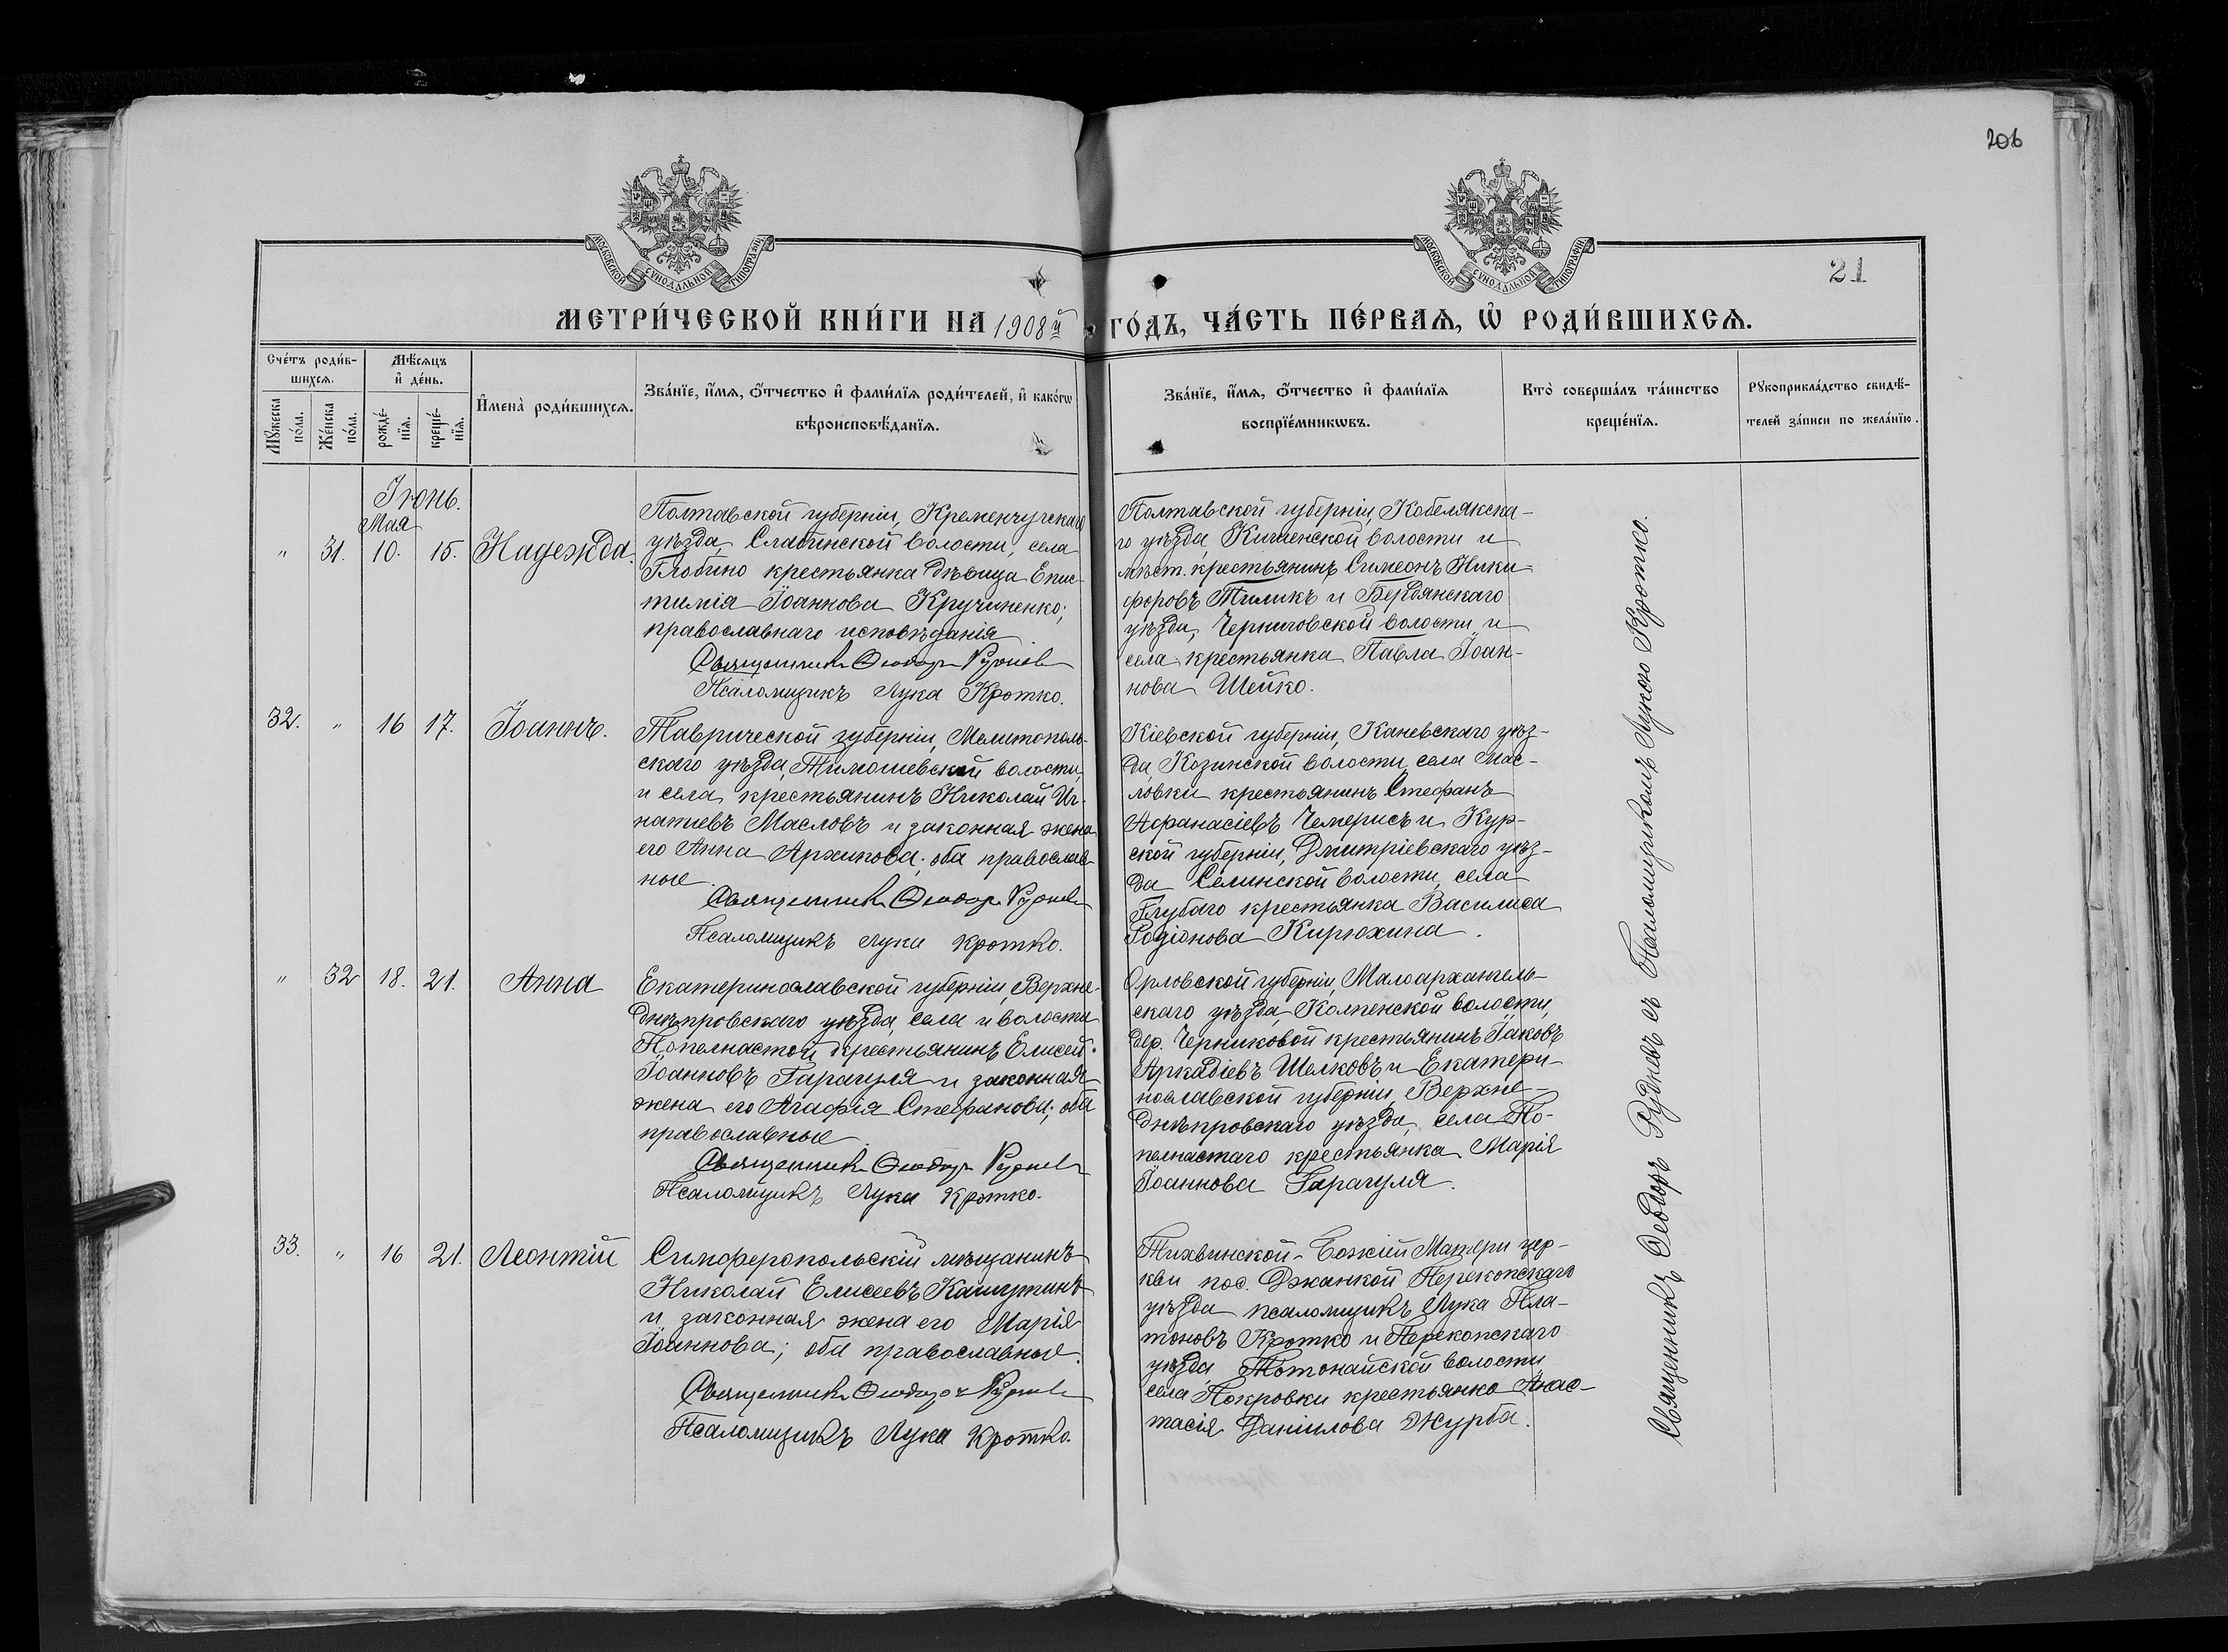 206
МОСКОВСКОЙ СѴНОДАЛЬНОЙ ТИПОГРАФІИ
МОСКОВСКОЙ СѴНОДАЛЬНОЙ ТИПОГРАФІИ
21
МЕТРИ́ЧЕСКОЙ КНИ́ГИ НА 1908й ГО́ДЪ, ЧА́СТЬ ПЕ́РВАѦ, Ѡ҆ РОДИ́ВШИХСѦ.
Сче́тъ роди́в-
шихсѧ.
Мꙋ́жеска по́ла.
Же́нска по́ла.
Мѣ́сѧцъ
и҆ де́нь.
рожде́-
нїѧ.
креще́-
нїѧ.
И҆мена̀ роди́вшихсѧ.
Зва́нїе, и҆́мѧ, ѻ҆́тчество и҆ фами́лїѧ роди́телей, и҆ како́гѡ
вѣроисповѣ́данїѧ.
Зва́нїе, и҆́мѧ, ѻ҆́тчество и҆ фами́лїѧ
воспрїе́мникѡвъ.
Кто̀ соверша́лъ та́инство
креще́нїѧ.
Рꙋкоприкла́дство свидѣ́-
телей за́писи по жела́нїю.
Іюнь.
Мая
" 31. 10. 15. Надежда.
Полтавской губерніи, Кременчугскаго
уѣзда, Слатинской волости, села
Глобино крестьянка дѣвица Епис-
тимія Іоаннова Кручиненко;
православнаго исповѣданія.
Священникъ Ѳеодоръ Рудневъ
Псаломщикъ Лука Кротко.
Полтавской губерніи, Кобелякска-
го уѣзда, Кишенской волости и
мѣст. крестьянинъ Симеонъ Ники-
форовъ Тиликъ и Бердянскаго
уѣзда, Черниговской волости и
села крестьянка Павла Іоан-
нова Шейко.
32. " 16 17. Іоаннъ.
Таврической губерніи, Мелитополь-
скаго уѣзда, Тимошевской волости,
и села крестьянинъ Николай Иг-
натіевъ Масловъ и законная жена
его Анна Архипова; оба православ-
ные.
Священникъ Ѳеодоръ Рудневъ
Псаломщикъ Лука Кротко.
Кіевской губерніи, Каневскаго уѣз-
да, Козинской волости, села Мас-
ловки крестьянинъ Стефанъ
Афанасіевъ Чемерисъ и Кур-
ской губерніи, Дмитріевскаго уѣз-
да Селинской волости, села
Глубаго крестьянка Василиса
Родіонова Кирюхина.
" 32 18. 21. Анна
Екатеринославской губерніи, Верхне-
днѣпровскаго уѣзда, села и волости
Попелнастой крестьянинъ Елисей
Іоанновъ Гарагуля и законная
жена его Агафія Стефанова; оба
православные.
Священникъ Ѳеодоръ Рудневъ
Псаломщикъ Лука Кротко.
Орловской губерніи, Малоархангель-
скаго уѣзда, Колпенской волости,
дер. Черниковой крестьянинъ Іаковъ
Аркадіевъ Шелковъ и Екатери-
нославской губерніи, Верхне-
днѣпровскаго уѣзда, села По-
пелнастаго крестьянка Марія
Іоаннова Гарагуля.
33. " 16 21. Леонтій
Симферопольскій мѣщанинъ
Николай Елисеевъ Кашутинъ
и законная жена его Марія
Іоаннова; оба православные.
Священникъ Ѳеодоръ Рудневъ
Псаломщикъ Лука Кротко.
Тихвинской Божіей Матери цер-
кви пос. Джанкой Перекопскаго
уѣзда псаломщикъ Лука Пла-
тоновъ Кротко и Перекопскаго
уѣзда, Тотонайской волости
села Покровки крестьянка Анас-
тасія Даніилова Журба.
Священникъ Ѳеодоръ Рудневъ съ Псаломщикомъ Лукою Кротко.